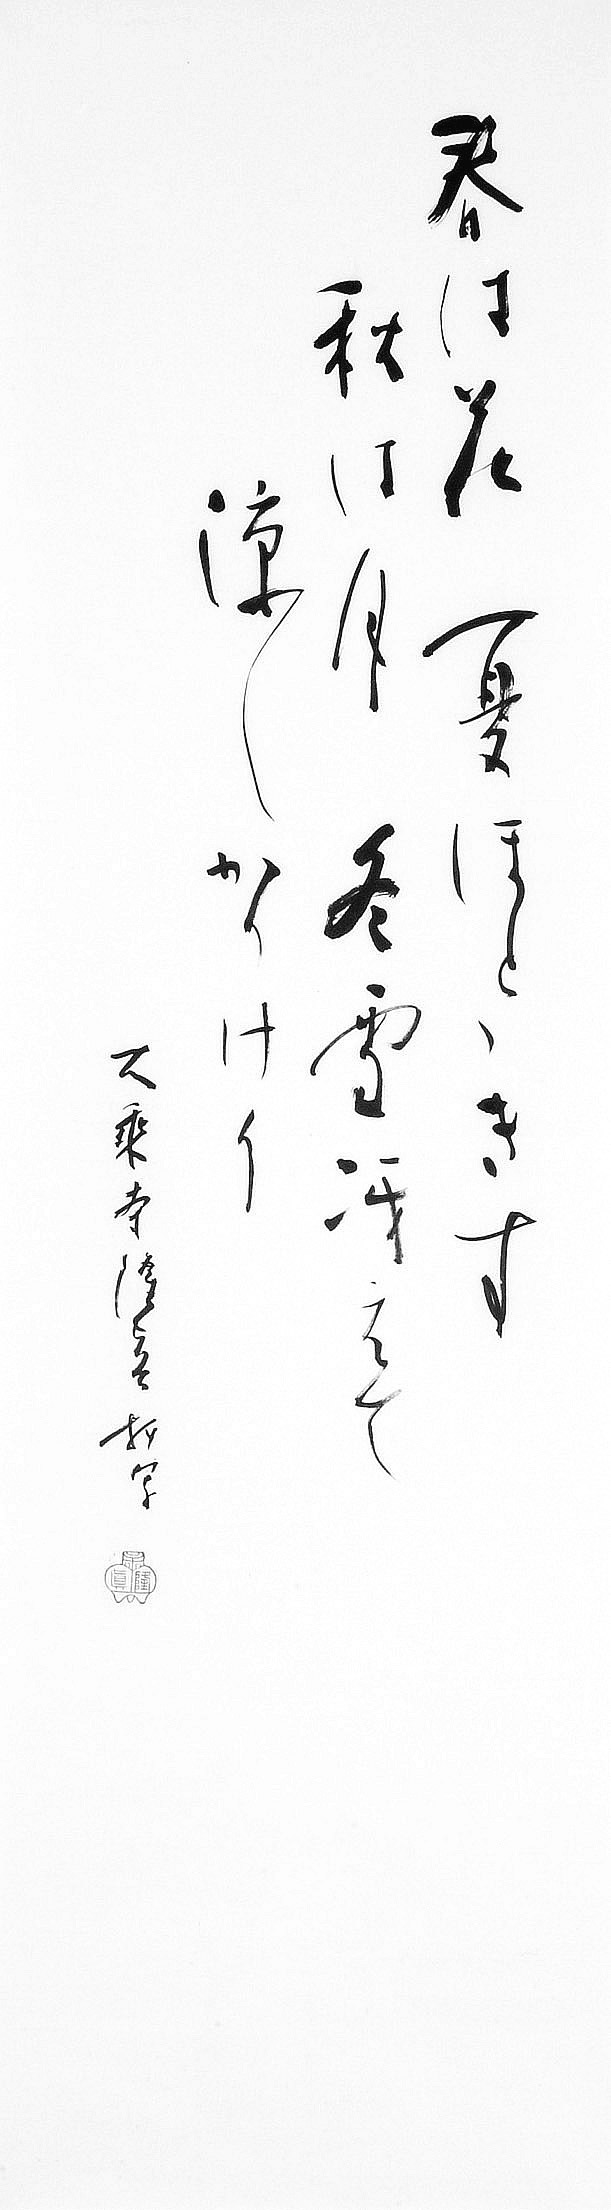 春は花 夏ほとゝきす
秋は月 冬雪冴えて
涼しかりけり
大乘寺隆